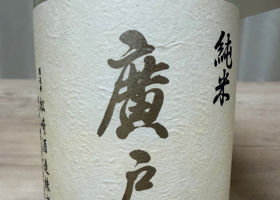 純米
廣戸
松崎酒造